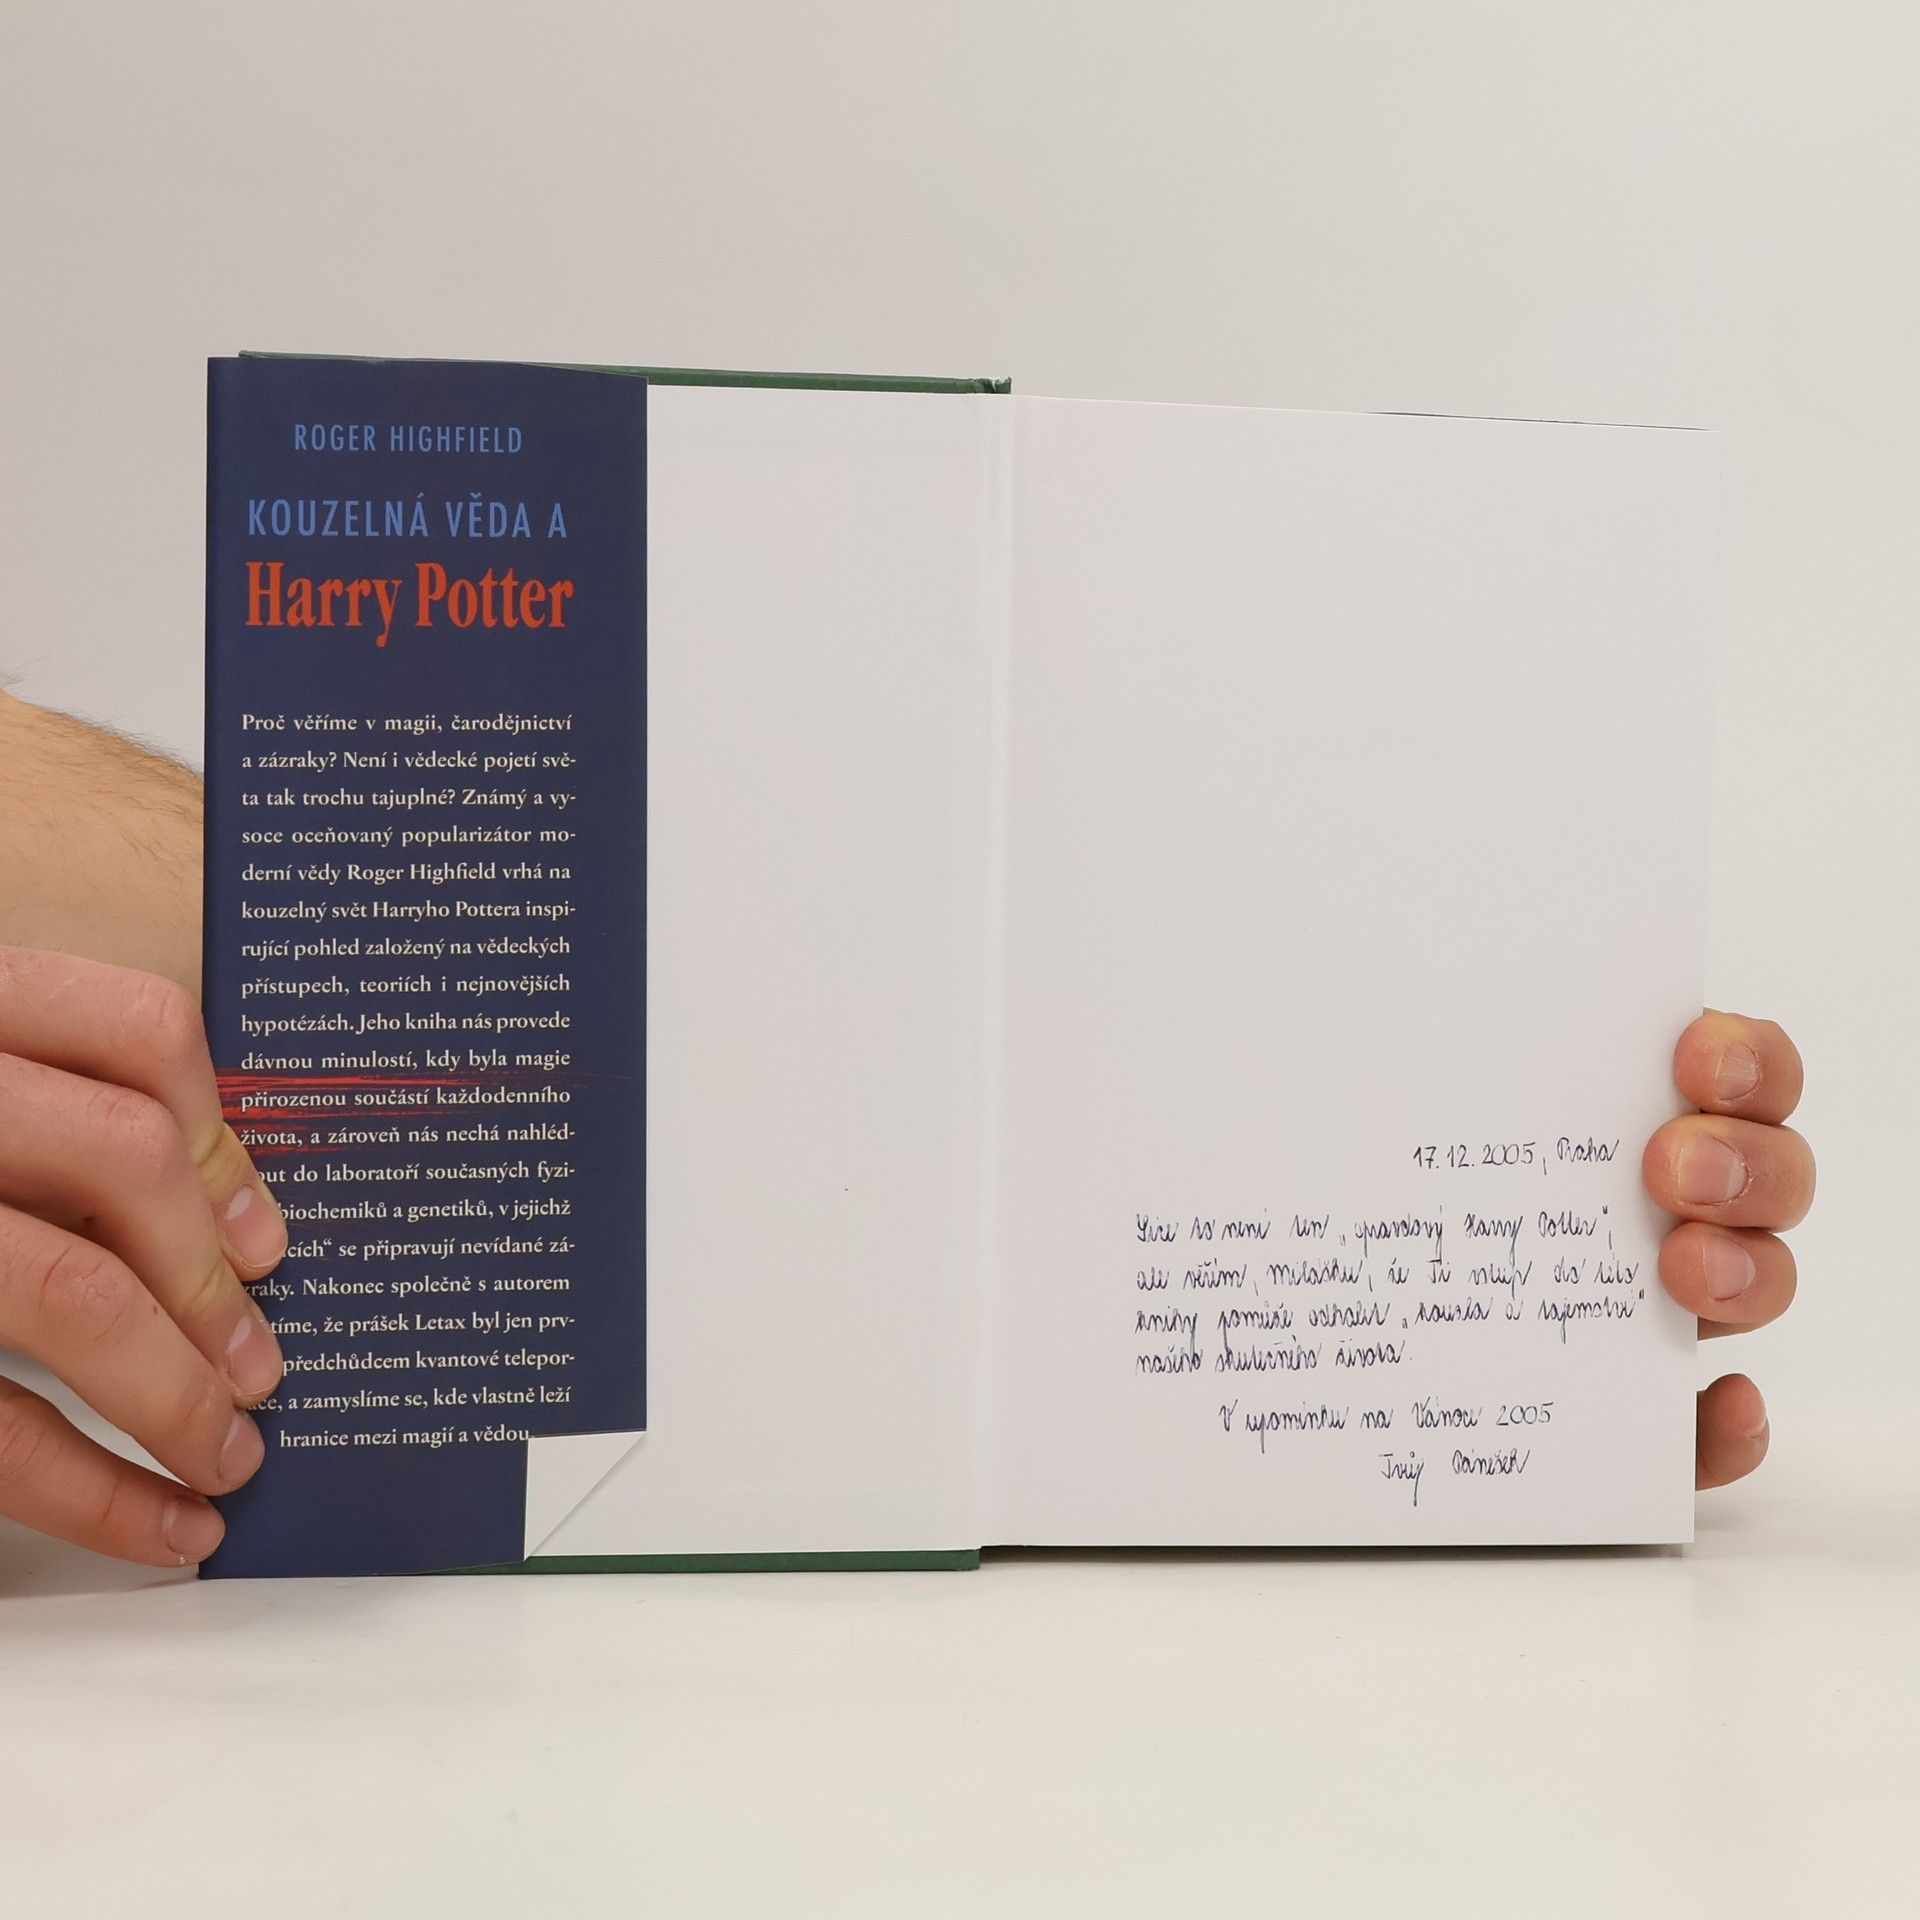 ROGER HIGHFIELD
KOUZELNÁ VĚDA A
Harry Potter
Proč věříme v magii, čarodějnictví
a zázraky? Není i vědecké pojetí svě-
ta tak trochu tajuplné? Známý a vy-
soce oceňovaný popularizátor mo-
derní vědy Roger Highfield vrhá na
kouzelný svět Harryho Pottera inspi-
rující pohled založený na vědeckých
přístupech, teoriích i nejnovějších
hypotézách. Jeho kniha nás provede
dávnou minulostí, kdy byla magie
přirozenou součástí každodenního
života, a zároveň nás nechá nahléd-
out do laboratoří současných fyzi-
biochemiků a genetiků, v jejichž
cích“ se připravují nevídané zá-
zraky. Nakonec společně s autorem
tíme, že prášek Letax byl jen prv-
předchůdcem kvantové telepor-
ce, a zamyslíme se, kde vlastně leží
hranice mezi magií a vědou.
17. 12. 2005, Praha
Sice to není ten „opravdový Harry Potter“,
ale věřím, Milášku, že Ti vstup do této
knihy pomůže odhalit „kouzla a tajemství“
našeho skutečného života.
V upomínku na Vánoce 2005
Tvůj